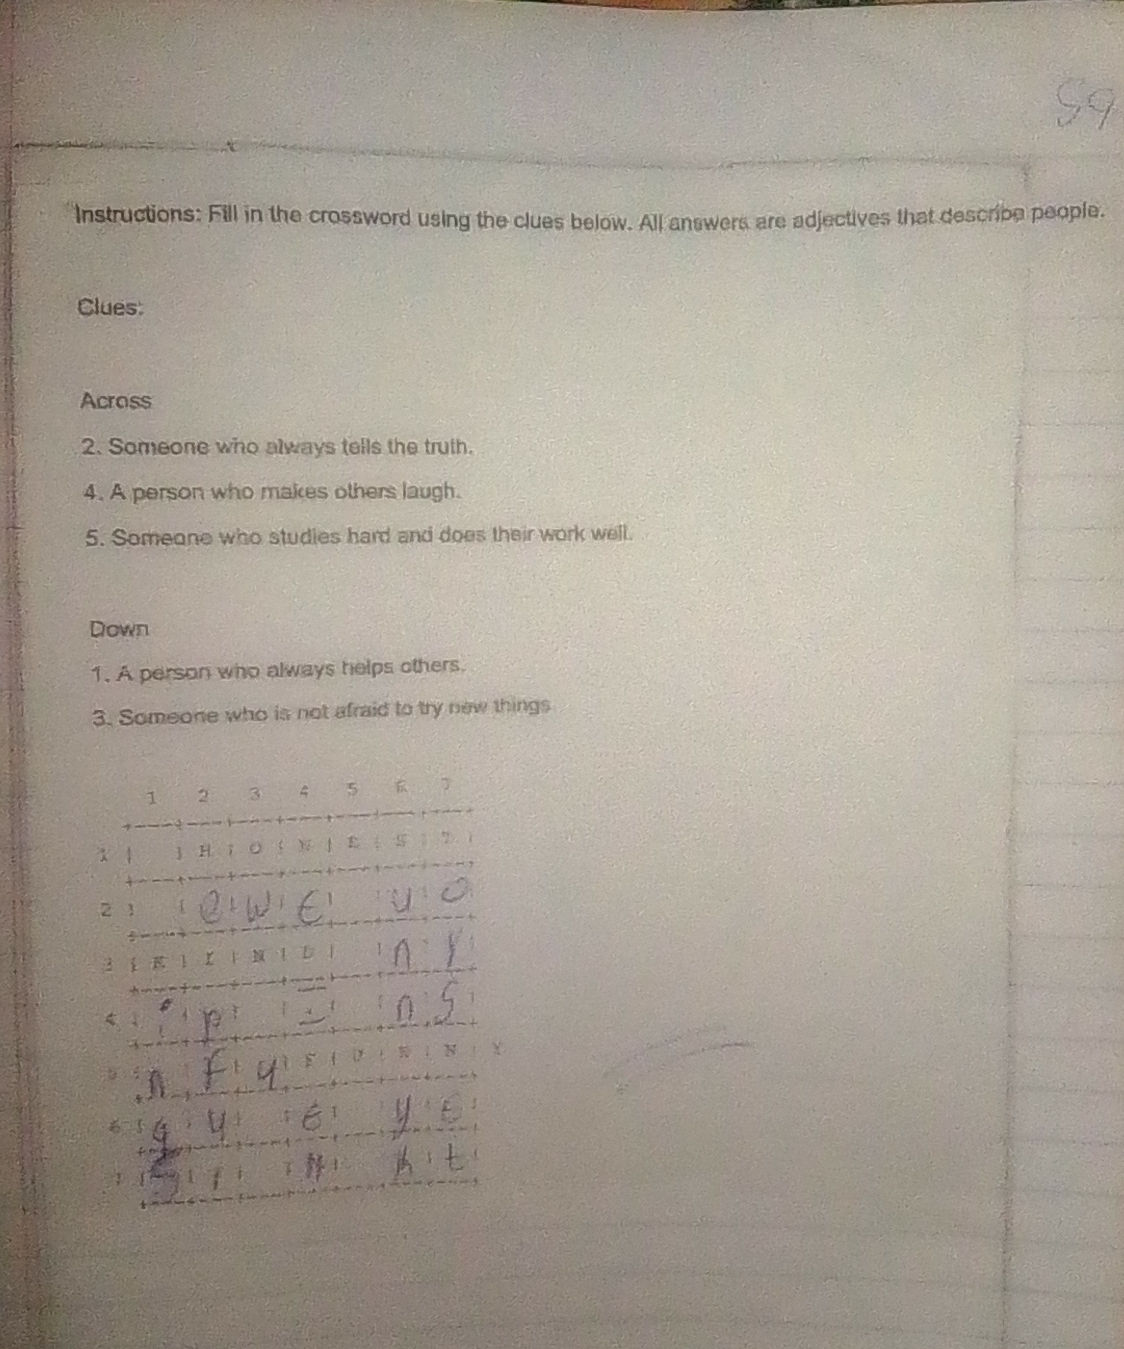 59
Instructions: Fill in the crossword using the clues below. All answers are adjectives that describe people.
Clues:
Across
2. Someone who always tells the truth.
4. A person who makes others laugh.
5. Someone who studies hard and does their work well.
Down
1. A person who always helps others.
3. Someone who is not afraid to try new things
1 2 3 4 5 6 7
1 H O N E S T
2 e W E y O
3 K I N D n Y
4 i p I n S
5 n F y F U N N Y
6 g y E y E
7 S I N h t